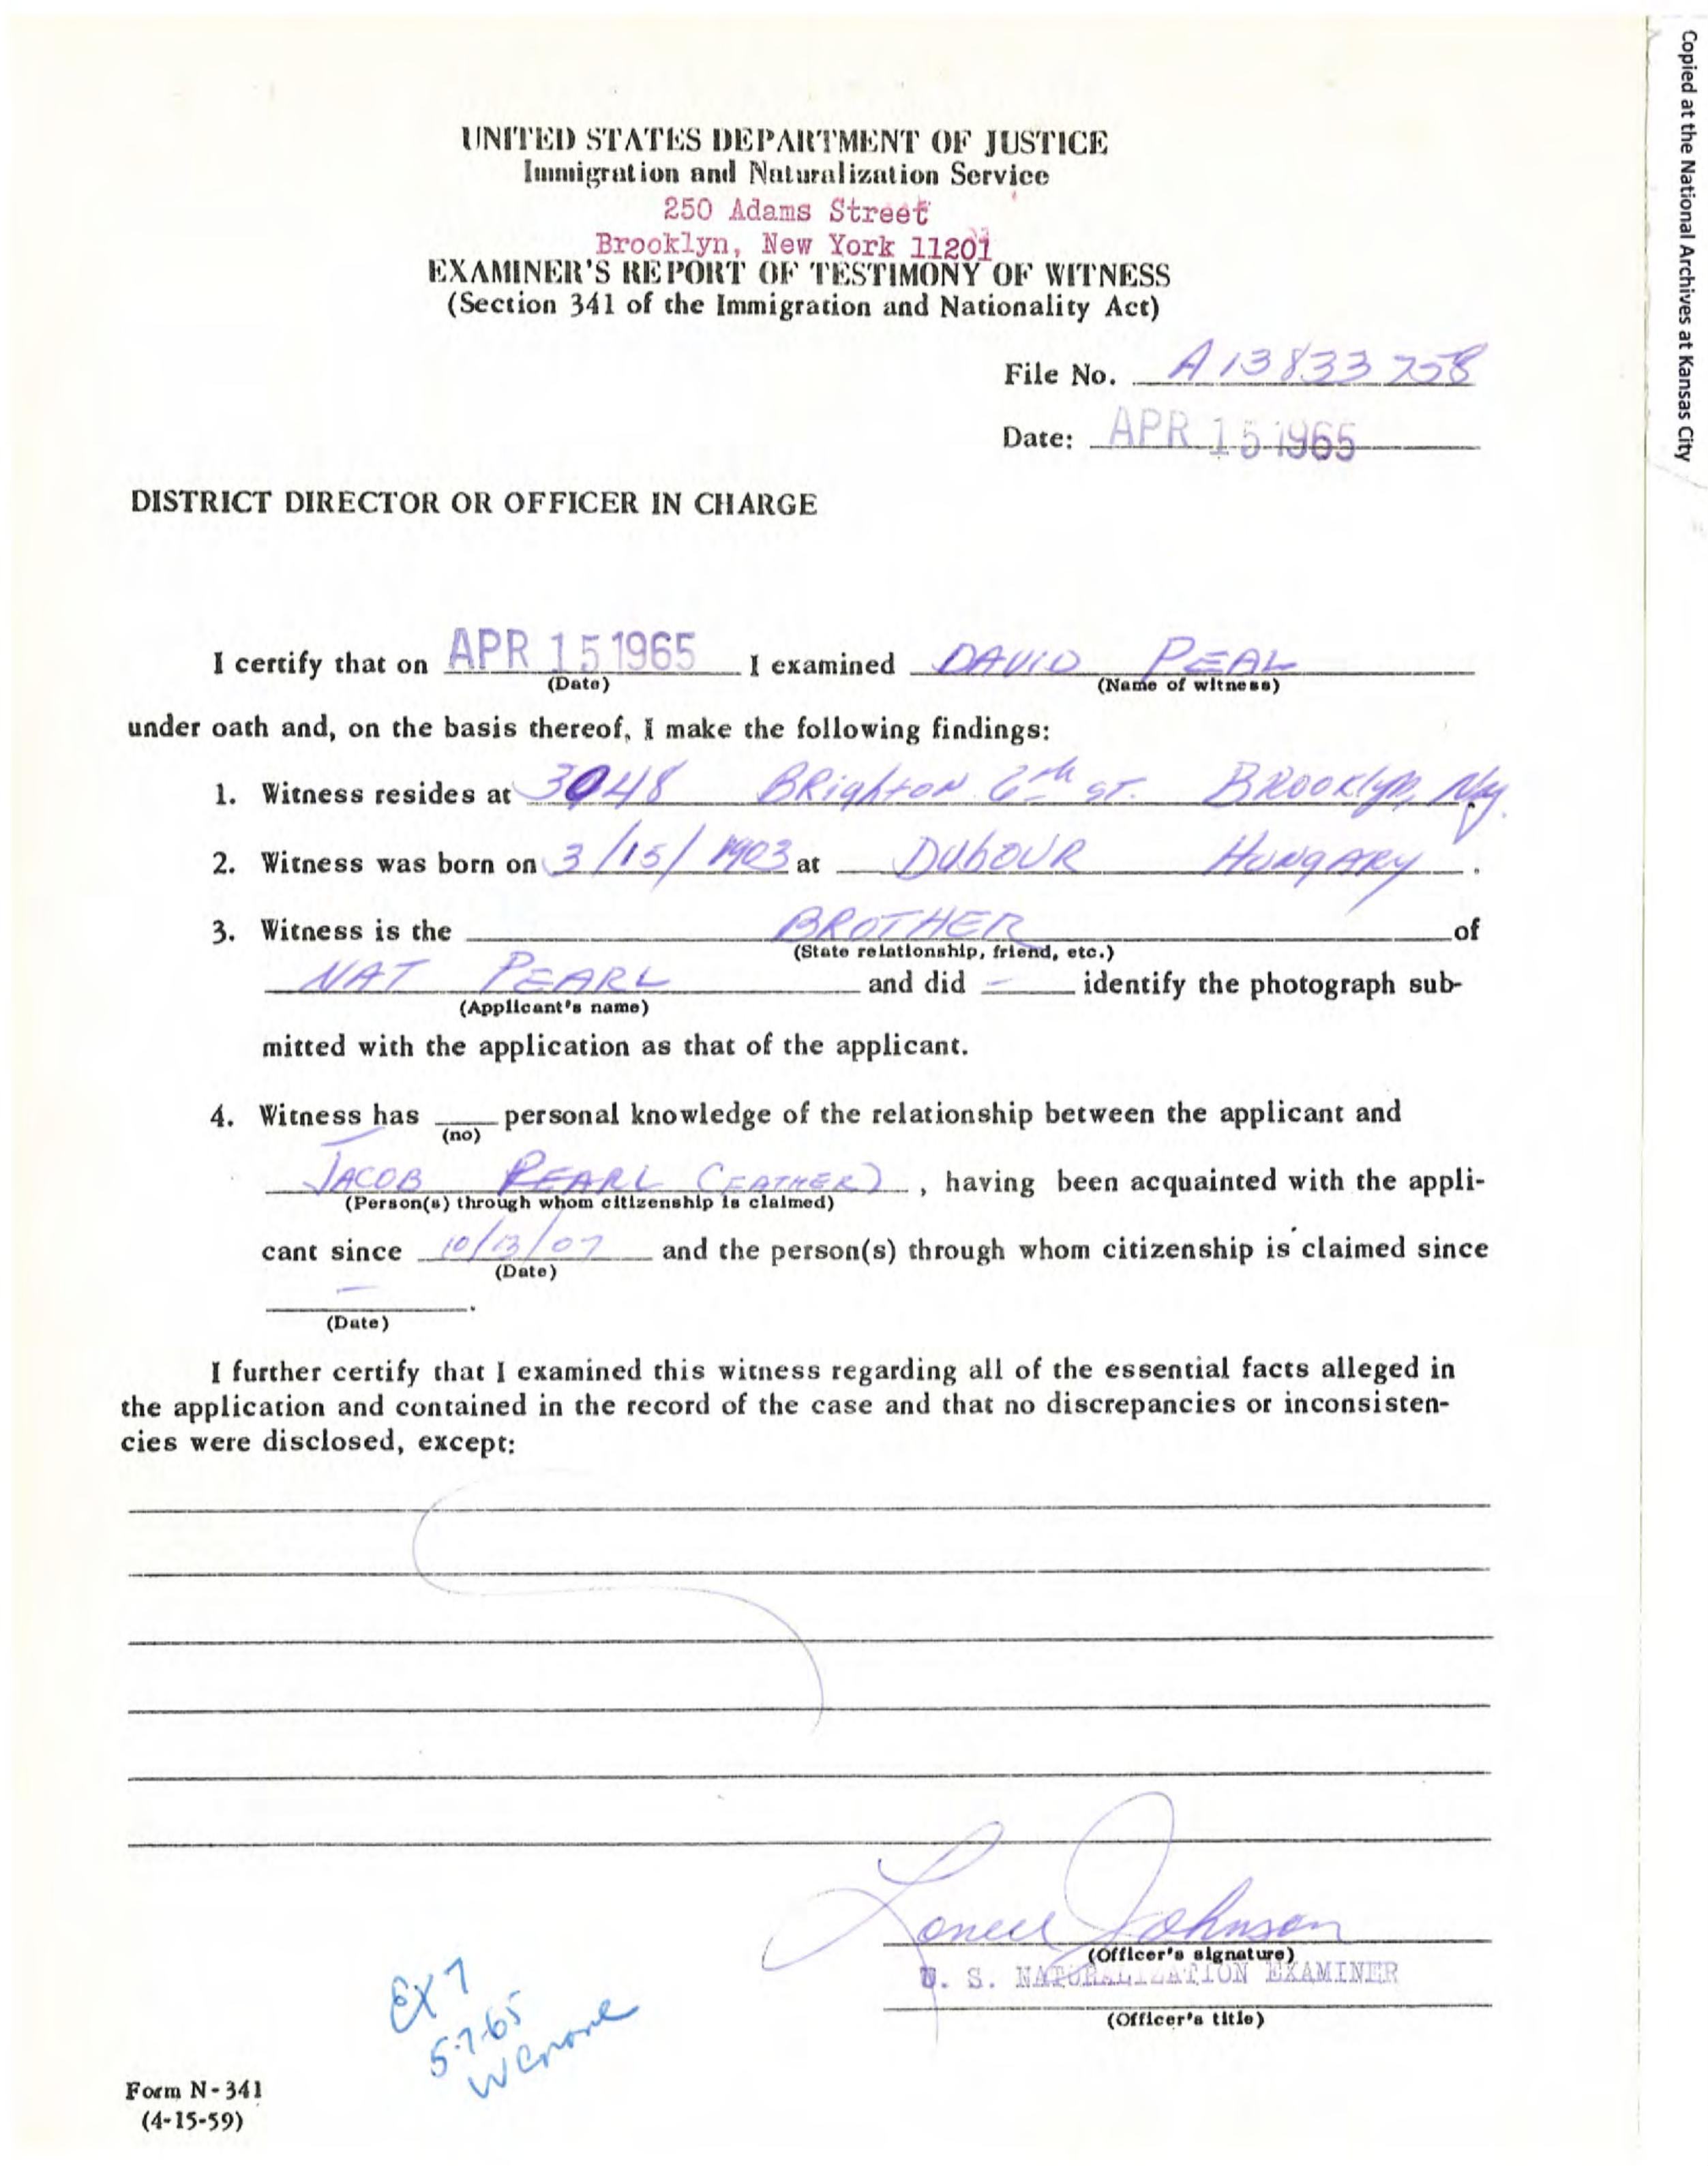 Copied at the National Archives at Kansas City
UNITED STATES DEPARTMENT OF JUSTICE
Immigration and Naturalization Service
250 Adams Street
Brooklyn, New York 11201
EXAMINER'S REPORT OF TESTIMONY OF WITNESS
(Section 341 of the Immigration and Nationality Act)
File No. A13 833 758
Date: APR 15 1965
DISTRICT DIRECTOR OR OFFICER IN CHARGE
I certify that on APR 15 1965 I examined DAVID PEAL
(Date) (Name of witness)
under oath and, on the basis thereof, I make the following findings:
1. Witness resides at 3048 Brighton 6th ST. Brooklyn, Ny.
2. Witness was born on 3/15/1903 at DUBOUR HUNGARY.
3. Witness is the BROTHER of
(State relationship, friend, etc.)
NAT PEARL and did — identify the photograph sub-
(Applicant's name)
mitted with the application as that of the applicant.
4. Witness has personal knowledge of the relationship between the applicant and
(no)
JACOB PEARL (FATHER), having been acquainted with the appli-
(Person(s) through whom citizenship is claimed)
cant since 10/13/07 and the person(s) through whom citizenship is claimed since
(Date)
—.
(Date)
I further certify that I examined this witness regarding all of the essential facts alleged in
the application and contained in the record of the case and that no discrepancies or inconsisten-
cies were disclosed, except:
Johnson
(Officer's signature)
U. S. NATURALIZATION EXAMINER
(Officer's title)
EX 7
5-7-65
Form N-341
(4-15-59)